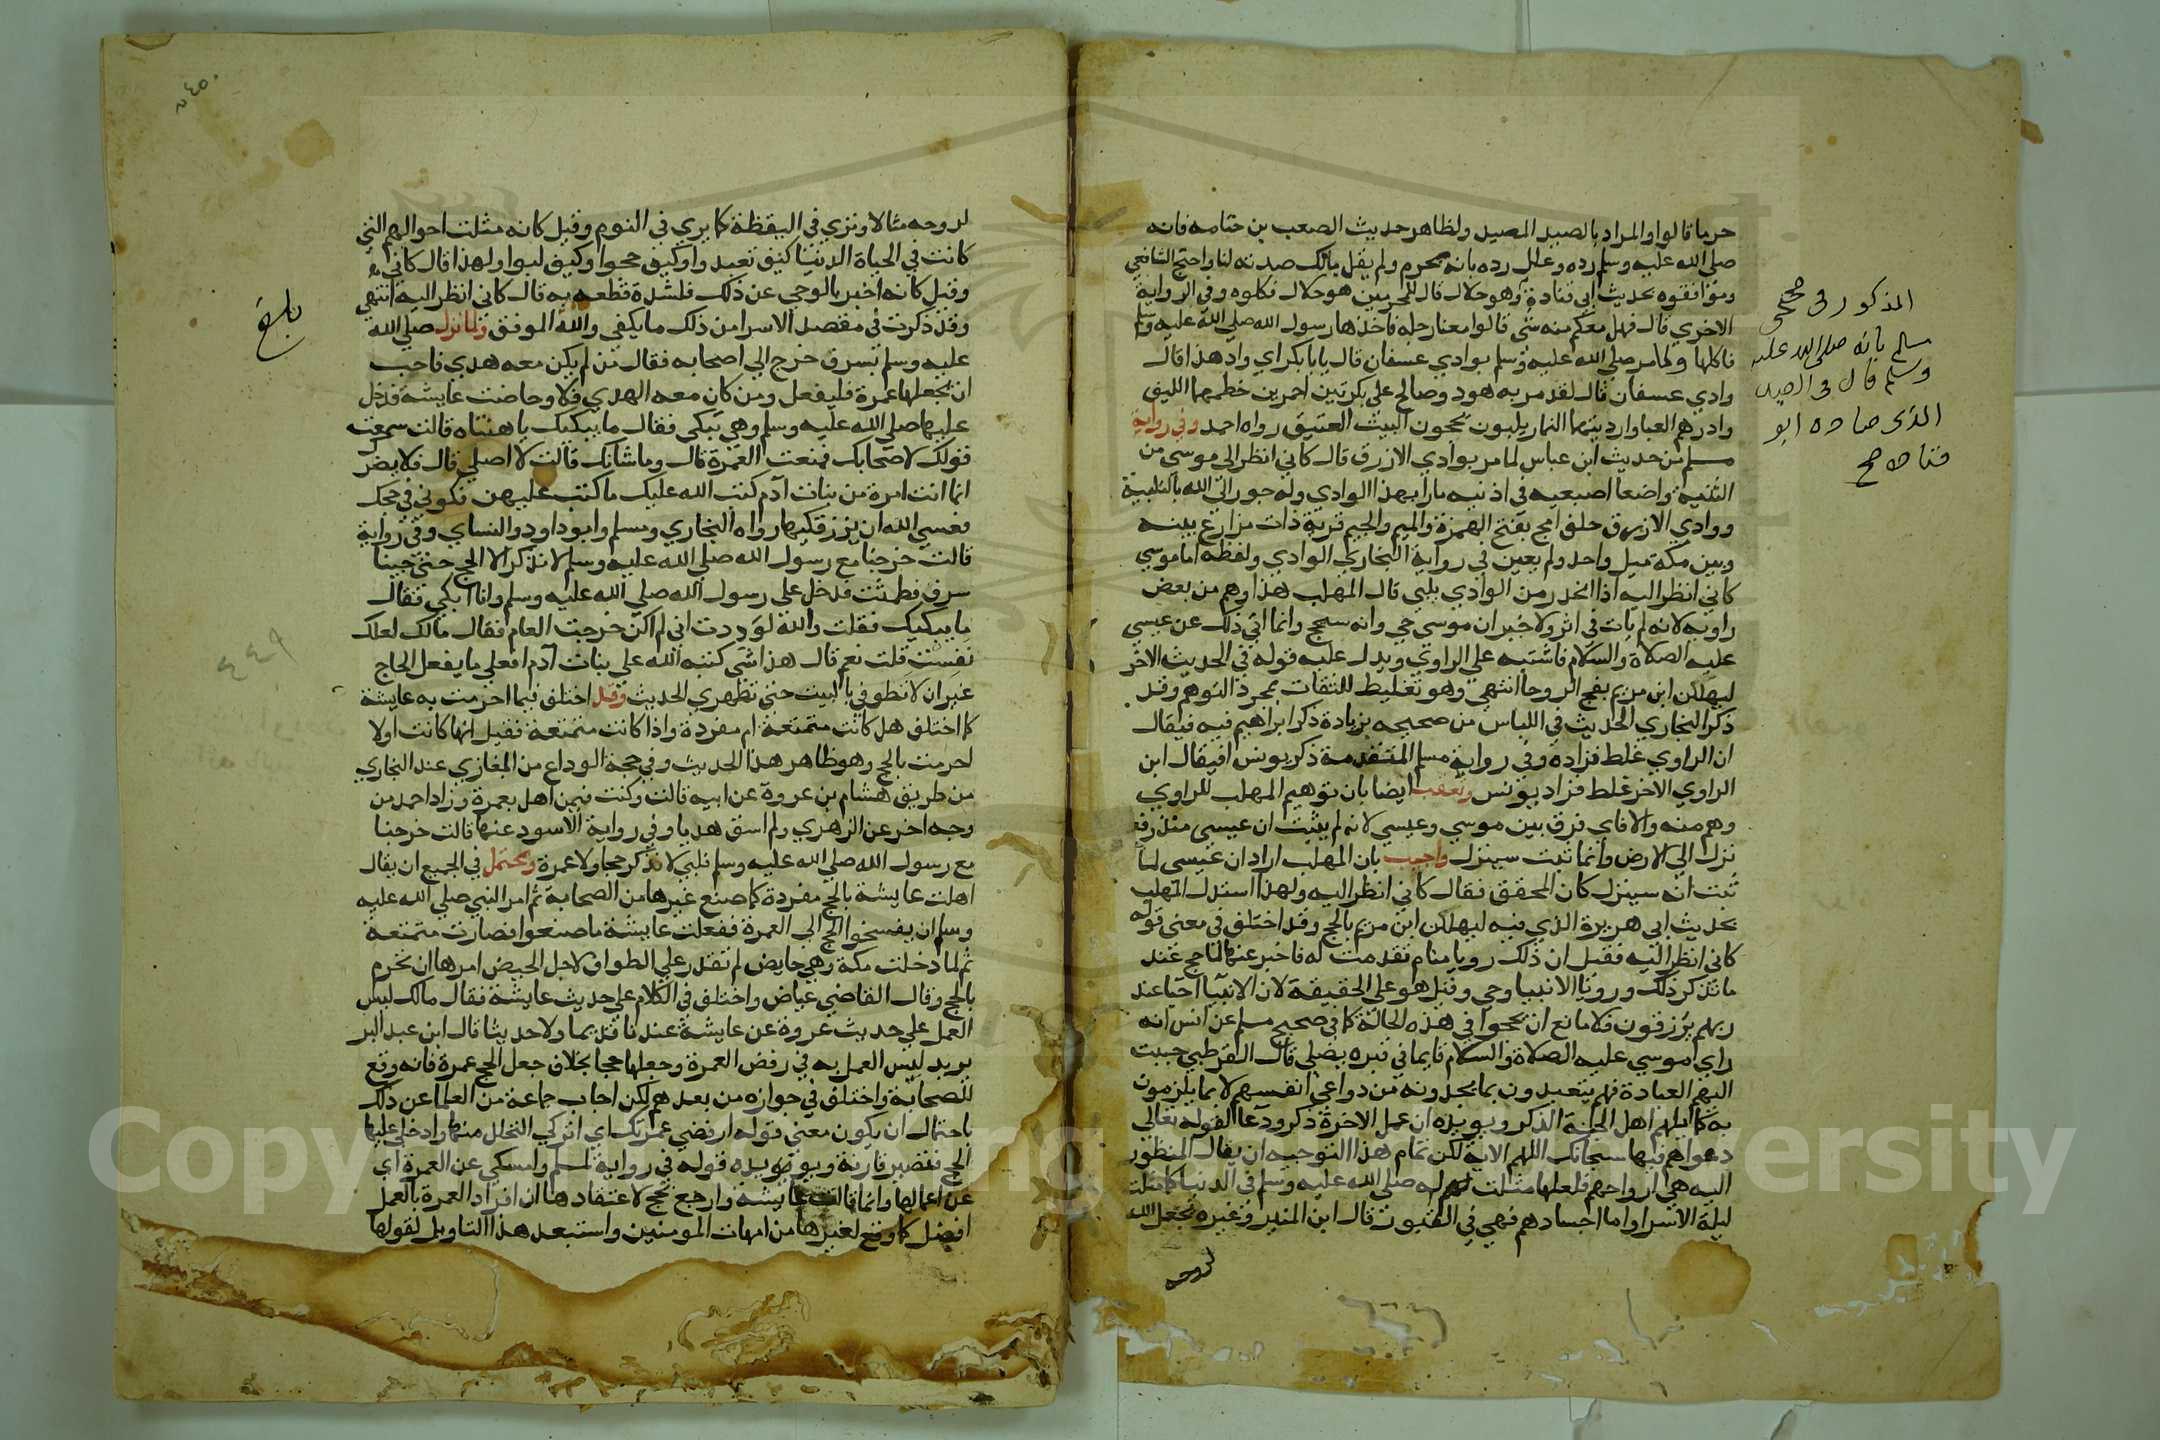 حرما قالوا والمراد بالصيد المصيد ولظاهر حديث الصعب بن جثامة فانه
صلي الله عليه وسلم رده وعلل رده بانه محرم ولم يقل بانك صدته لنا واحتج الشافعي
وموافقوه بحديث ابي قتادة وهو حلال قال للمحرمين هو حلال فكلوه وفي الرواية
الاخري قال فهل معكم منه شي قالوا معنا رجله فاخذها رسول الله صلي الله عليه وسلم
فاكلها ولما مر صلي الله عليه وسلم بوادي عسفان قال يابا بكر اي واد هذا قال
وادي عسفان قال لقد مر به هود وصالح علي بكرتين احمرين خطمهما الليف
وازرهم العبا وارديتهم النمار يلبون يحجون البيت العتيق رواه احمد وفي رواية
مسلم من حديث ابن عباس لما مر بوادي الازرق قال كاني انظر الي موسي من
الثنية واضعا اصبعيه في اذنيه مارا بهذا الوادي وله جوار الي الله بالتلبية
ووادي الازرق خلف امج بفتح الهمزة والميم والجيم قرية ذات مزارع بينه
وبين مكة ميل واحد ولم يعين في رواية البخاري الوادي ولفظه اما موسي
كاني انظر اليه اذا انحدر من الوادي يلبي قال المهلب هذا وهم من بعض
راويه لانه لم يات في اثر ولا خبر ان موسي حي وانه سيحج وانما اتي ذلك عن عيسي
عليه الصلاة والسلام فاشتبه علي الراوي ويدل عليه قوله في الحديث الاخر
ليهلن ابن مريم بفج الروحا انتهي وهو تغليط للثقات بمجرد التوهم وقد
ذكر البخاري الحديث في اللباس من صحيحه بزيادة ذكر ابراهيم فيه فيقال
ان الراوي غلط فزاده وفي رواية مسلم المتقدمة ذكر يونس افيقال ان
الراوي الاخر غلط فزاد يونس وتعقب ايضا بان توهيم المهلب للراوي
وهم منه والا فاي فرق بين موسي وعيسي لانه لم يثبت ان عيسى منذ رفع
نزل الي الارض وانما ثبت سينزل واجيب بان المهلب اراد ان عيسى لما
ثبت انه سينزل كان المحقق فقال كاني انظر اليه ولهذا استدل المهلب
بحديث ابي هريرة الذي فيه ليهلن ابن مريم بالحج وقد اختلف في معني قوله
كاني انظر اليه فقيل ان ذلك رويا منام تقدمت له فاخبر عنها لما حج عند
ما تذكر ذلك ورويا الانبيا وحي وقيل هو علي الحقيقة لان الانبيا احيا عند
ربهم يرزقون فلا مانع ان يحجوا في هذه الحالة كما في صحيح مسلم عن انس انه
راي موسي عليه الصلاة والسلام قايما في قبره يصلي قال القرطبي حببت
اليهم العبادة فهم يتعبدون بما يجدونه من دواعي انفسهم لا بما يلزمون
به كما يلهم اهل الجنة الذكر ويويده ان عمل الاخرة ذكر ودعا لقوله تعالي
دعواهم فيها سبحانك اللهم الاية لكن تمام هذا التوجيه ان يقال المنظور
اليه هي ارواحهم فلعلها مثلت له صلي الله عليه وسلم في الدنيا كما مثلت
ليلة الاسرا واما اجسادهم فهي في القبور قال ابن المنير وغيره يجعل الله
لروحه
المذكور في حجى
مسلم بانه صلى الله عليه
وسلم قال في الصيد
الذى صاده ابو
قتاده صح
لروحه مثالا ويري في اليقظة كما يري في النوم وقيل كانه مثلت احوالهم التي
كانت في الحياة الدنيا كيف تعبدوا وكيف حجوا وكيف لبوا ولهذا قال كاني
وقيل كانه اخبر بالوحي عن ذلك فلشدة قطعه به قال كاني انظر اليه انتهي
وقد ذكرت في مقصد الاسرا من ذلك ما يكفي والله الموفق ولما نزل صلي الله
عليه وسلم بسرف خرج الي اصحابه فقال من لم يكن معه هدي فاحب
ان يجعلها عمرة فليفعل ومن كان معه الهدي فلا وحاضت عايشة فدخل
عليها صلي الله عليه وسلم وهي تبكي فقال ما يبكيك يا هنتاه قالت سمعت
قولك لاصحابك فمنعت العمرة قال وما شانك قالت لا اصلي قال فلا يضرك
انما انت امرة من بنات آدم كتب الله عليك ما كتب عليهن فكوني في حجك
فعسي الله ان يرزقكيها رواه البخاري ومسلم وابو داود والنساي وفي رواية
قالت خرجنا مع رسول الله صلي الله عليه وسلم لا نذكر الا الحج حتي جينا
سرف فطمثت فدخل علي رسول الله صلي الله عليه وسلم وانا ابكي فقال
ما يبكيك فقلت والله لوددت اني لم اكن خرجت العام فقال مالك لعلك
نفست قلت نعم قال هذا شي كتبه الله علي بنات آدم افعلي ما يفعل الحاج
غير ان لا تطوفي بالبيت حتي تطهري الحديث وقد اختلف فيما احرمت به عايشة
كما اختلف هل كانت متمتعة ام مفردة واذا كانت متمتعة فقيل انها كانت اولا
احرمت بالحج وهو ظاهر هذا الحديث وفي حجة الوداع من المغازي عند البخاري
من طريق هشام بن عروة عن ابيه قالت وكنت فيمن اهل بعمرة وزاد احمد من
وجه اخر عن الزهري ولم اسق هديا وفي رواية الاسود عنها قالت خرجنا
مع رسول الله صلي الله عليه وسلم نلبي لا نذكر حجا ولا عمرة ويحتمل في الجمع ان يقال
اهلت عايشة بالحج مفردة كما صنع غيرها من الصحابة ثم امر النبي صلي الله عليه
وسلم ان يفسخوا الحج الي العمرة ففعلت عايشة ما صنعوا فصارت متمتعة
ثم لما دخلت مكة وهي حايض لم تقدر علي الطواف لاجل الحيض امرها ان تحرم
بالحج وقال القاضي عياض واختلف في الكلام علي حديث عايشة فقال مالك ليس
العمل علي حديث عروة عن عايشة عندنا قديما ولا حديثا قال ابن عبد البر
يريد ليس العمل به في رفض العمرة وجعلها حجا بخلاف جعل الحج عمرة فانه وقع
للصحابة واختلف في جوازه من بعدهم لكن اجاب جماعة من العلما عن ذلك
باحتمال ان يكون معني قوله ارفضي عمرتك اي اتركي التحلل منها وادخلي عليها
الحج فتصير قارنة ويويده قوله في رواية لمسلم وامسكي عن العمرة اي
عن اعمالها وانما قالت عايشة وارجع بحج لاعتقادها ان افراد العمرة بالعمل
افضل كما وقع لغيرها من امهات المومنين واستبعد هذا التاويل لقولها
بلغ
Copy
ng
versity